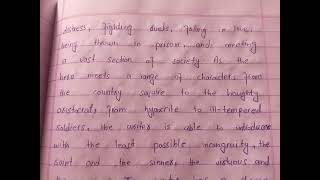 distress, fighting duels, falling in love,
being thrown in prison, and meeting
a vast section of society. As the
hero meets a range of characters from
the country squire to the haughty
aristocrat, from hypocrite to ill-tempered
soldiers, the writer is able to introduce
with the least possible incongruity, the
saint and the sinner, the virtuous and
the